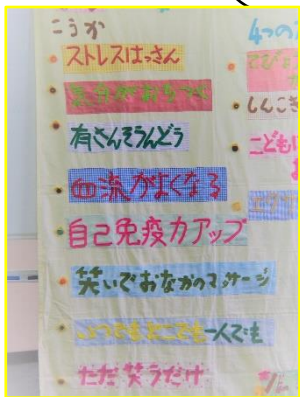 こうか
ストレスはっさん
気分がおちつく
有さんそうんどう
血流がよくなる
自己免疫力アップ
笑いでおなかのマッサージ
いつでもどこでも一人でも
ただ笑うだけ
4つの
しんこき
こども